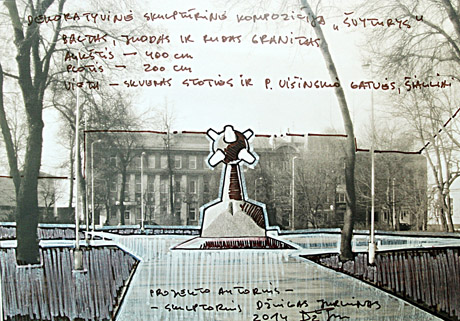 DEKORATYVINĖ SKULPTŪRINĖ KOMPOZICIJA „ŠVYTURYS"
BALTAS, JUODAS IR RUDAS GRANITAS
AUKŠTIS – 400 cm
PLOTIS – 200 cm
VIETA – SKVERAS STOTIES IR P. VIŠINSKIO GATVĖS, ŠIAULIAI
PROJEKTO AUTORIUS –
– SKULPTORIUS
2014